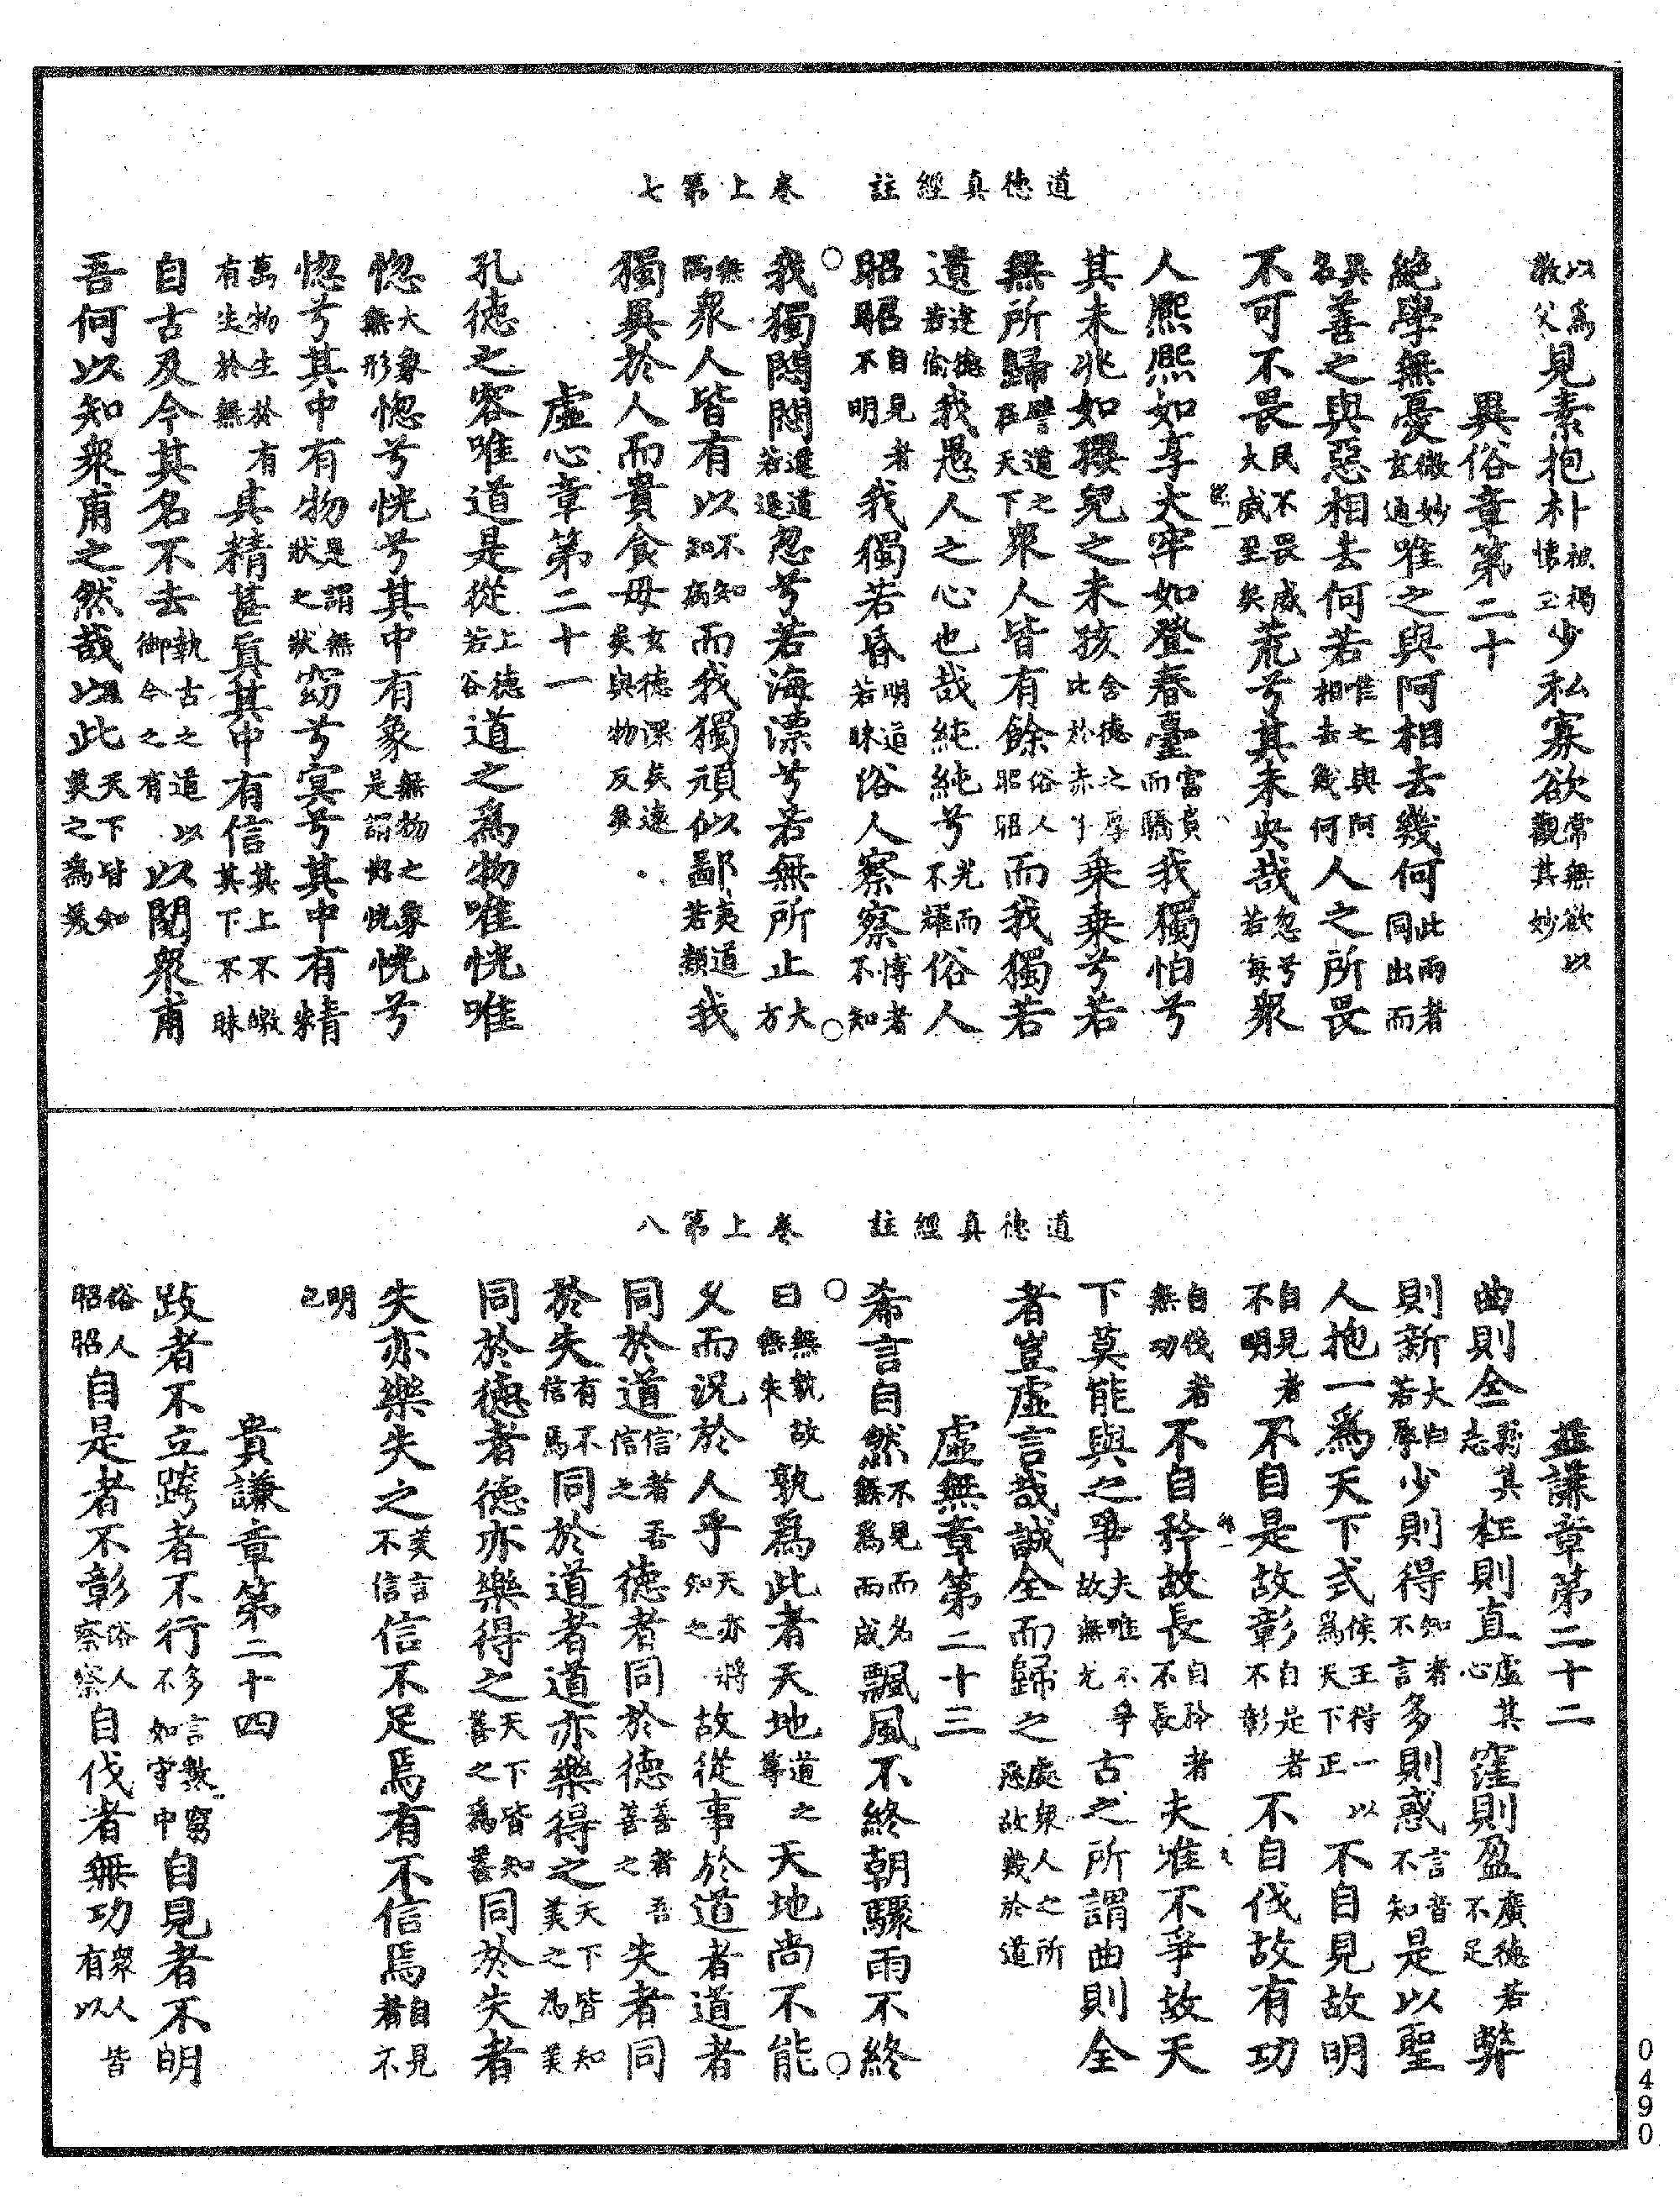 道德真經註　卷上第七
以為教父見素抱朴被褐懷玉少私寡欲常無欲以觀其妙
異俗章第二十
絕學無憂微妙玄通唯之與阿相去幾何此兩者同出而
異名善之與惡相去何若唯之與阿相去幾何人之所畏
不可不畏民不畏威大威至矣荒兮其未央哉忽兮若每眾
人熙熙如享太牢如登春臺富貴而驕我獨怕兮
其未兆如嬰兒之未孩含德之厚比於赤子乗乗兮若
無所歸譬道之在天下眾人皆有餘俗人昭昭而我獨若
遺建德若偷我愚人之心也哉純純兮光而不耀俗人
昭昭自見者不明我獨若昏明道若昧俗人察察博者不知
我獨悶悶進道若退忽兮若海漂兮若無所止大方
無隅眾人皆有以不知知病而我獨頑似鄙夷道若纇我
獨異於人而貴食母玄德深矣遠矣與物反矣
虛心章第二十一
孔德之容唯道是從上德若谷道之為物唯恍唯
惚大象無形惚兮恍兮其中有象無物之象是謂惚恍恍兮
惚兮其中有物是謂無狀之狀窈兮冥兮其中有精
萬物生於有有生於無其精甚真其中有信其上不皦其下不昧
自古及今其名不去執古之道以御今之有以閱眾甫
吾何以知眾甫之然哉以此天下皆知美之為美
道德真經註　卷上第八
益謙章第二十二
曲則全弱其志枉則直虛其心窪則盈廣德若不足弊
則新大白若辱少則得知者不言多則惑言者不知是以聖
人抱一為天下式侯王得一以為天下正不自見故明
自見者不明不自是故彰自是者不彰不自伐故有功
自伐者無功不自矜故長自矜者不長夫唯不爭故天
下莫能與之爭夫唯不爭故無尤古之所謂曲則全
者豈虛言哉誠全而歸之處眾人之所惡故幾於道
虛無章第二十三
希言自然不見而名無為而成飄風不終朝驟雨不終
日無執故無失孰為此者天地道之尊天地尚不能
久而況於人乎天亦將知之故從事於道者道者
同於道信者吾信之德者同於德善者吾善之失者同
於失有不信焉同於道者道亦樂得之天下皆知美之為美
同於德者德亦樂得之天下皆知善之為善同於失者
失亦樂失之美言不信信不足焉有不信焉自見者不
明之
貴謙章第二十四
跂者不立跨者不行多言數窮不如守中自見者不明
俗人昭昭自是者不彰俗人察察自伐者無功眾人皆有以
0490